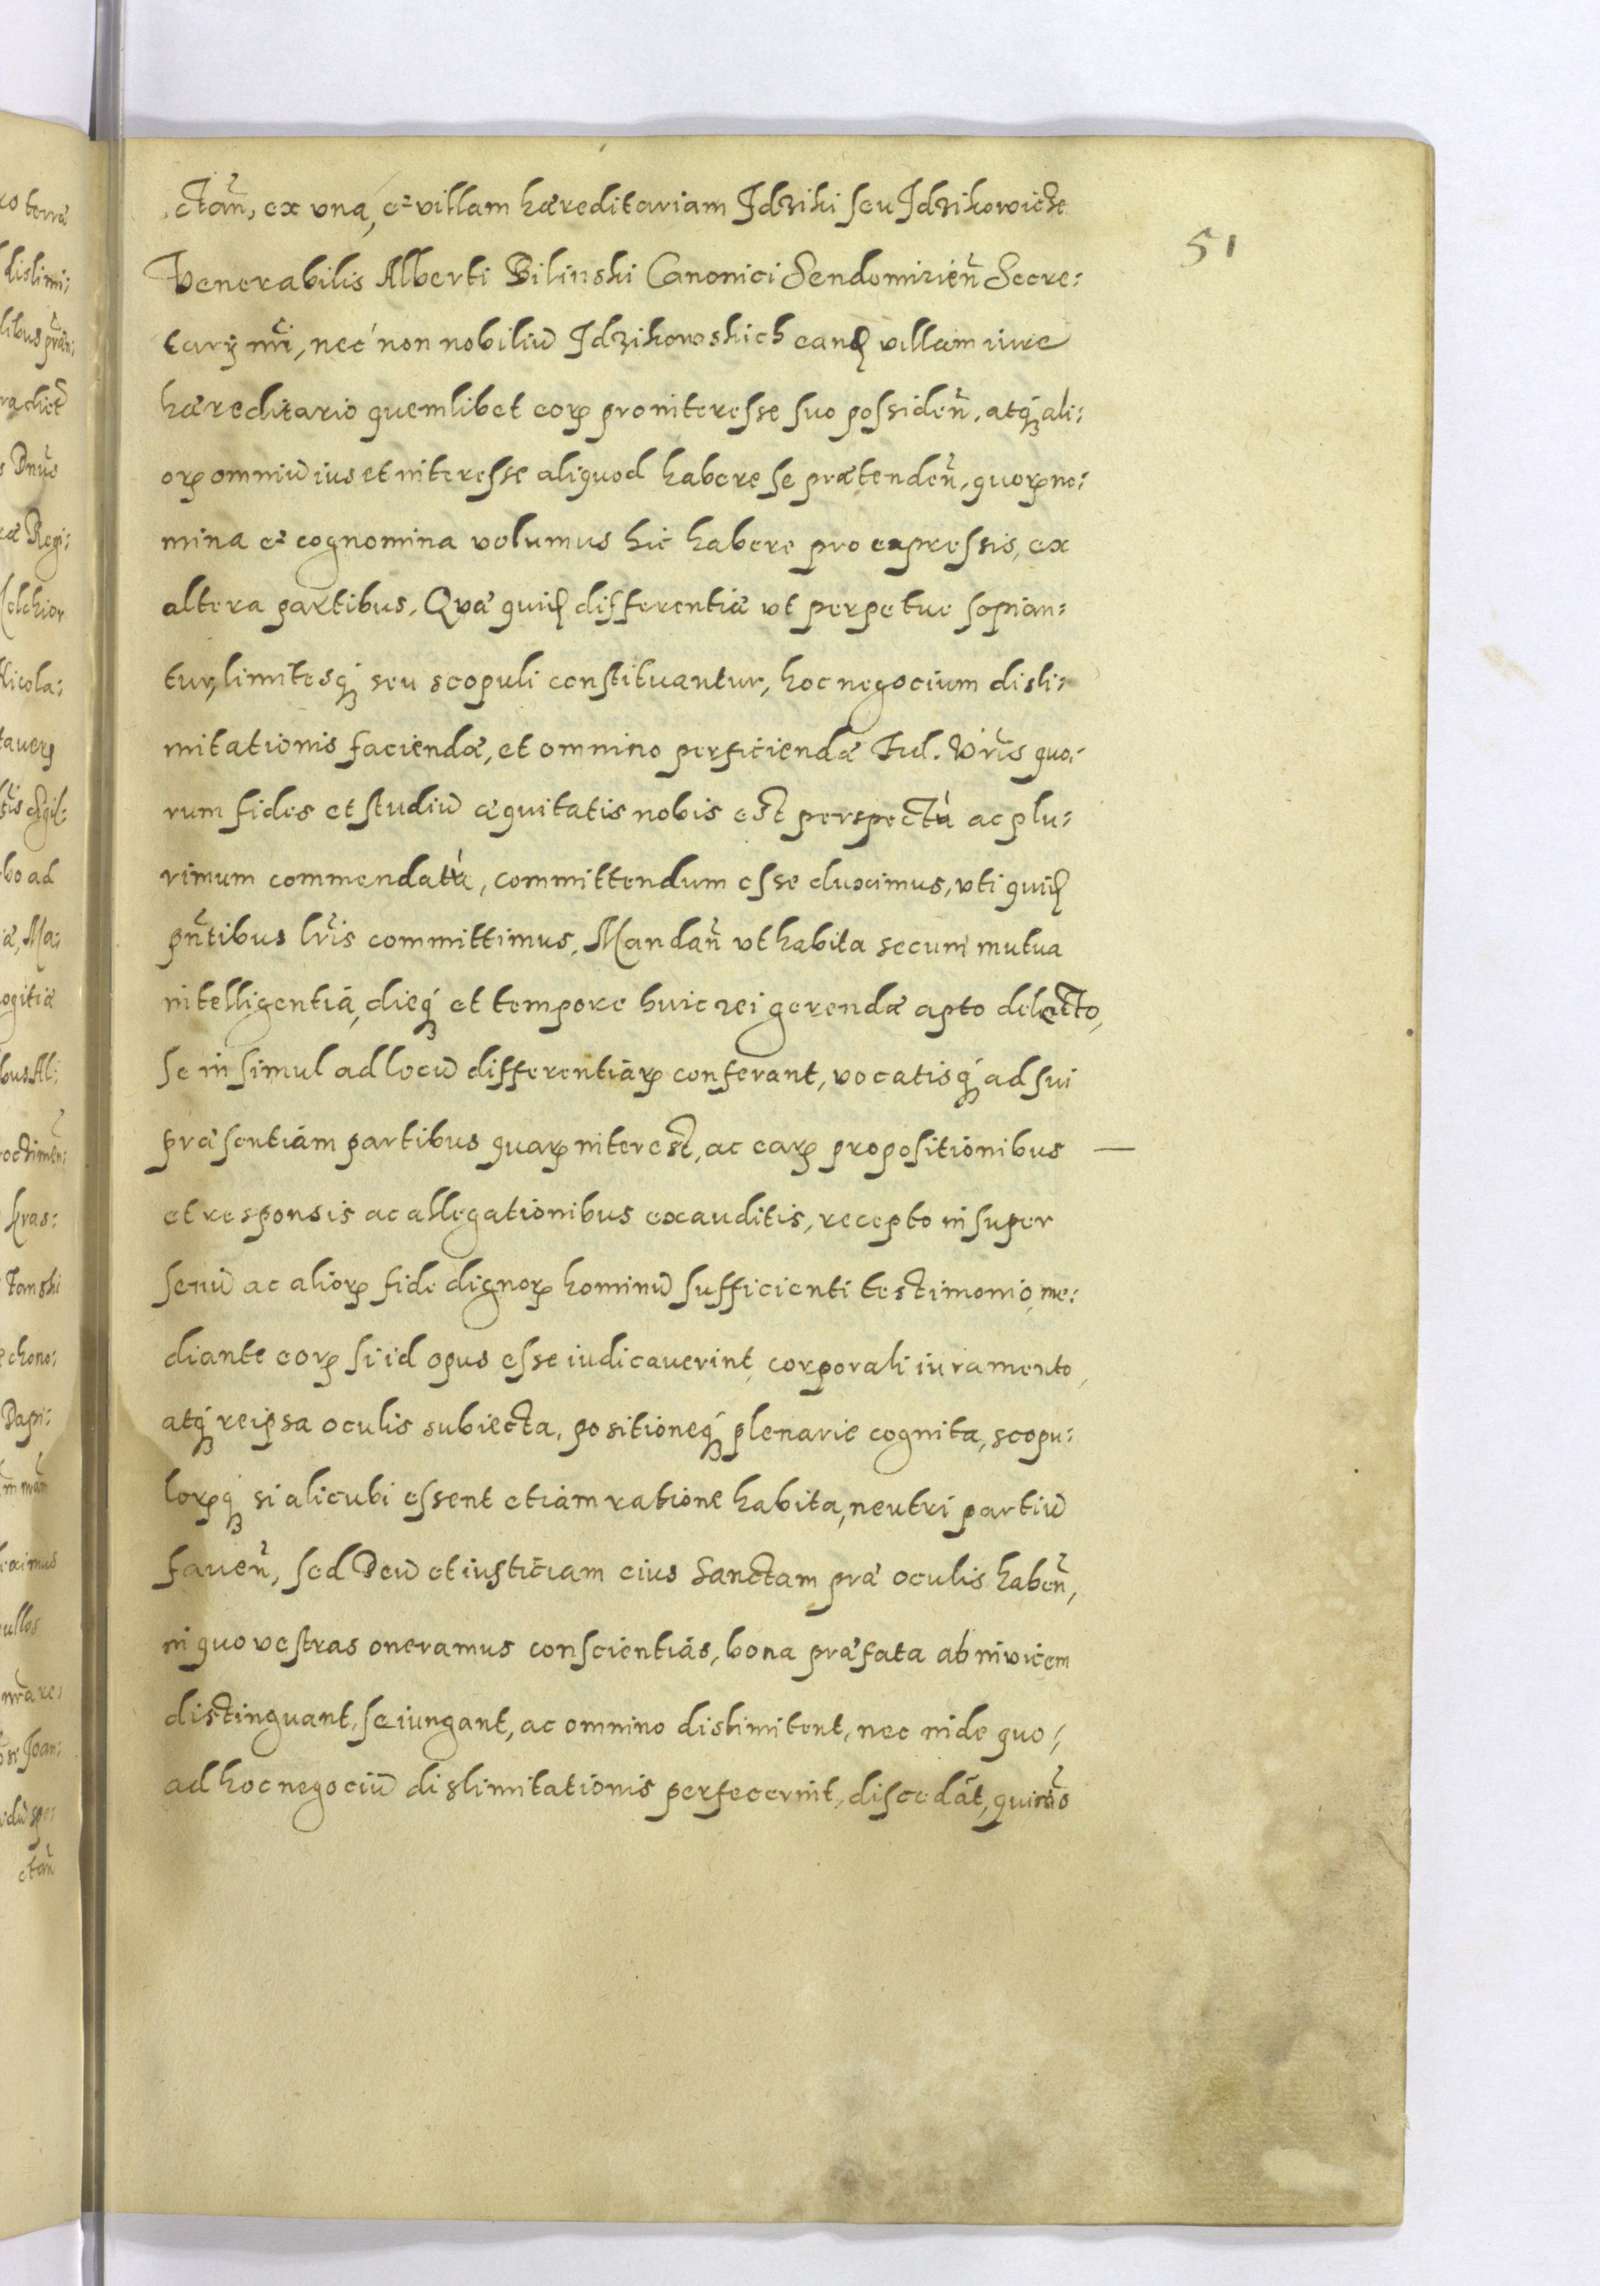 51
ctañ, ex una, et villam hæreditariam Jdziki seu Jdzikowicze
Venerabilis Alberti Bilinski Canonici Sendomirieñ Secre:
tarij nri, nec non nobiliū Jdzikowskich eandꝫ villam iure
hæreditario quemlibet eorꝝ pro interesse suo possideñ, atqꝫ ali:
orꝝ omniū ius et interesse aliquod habere se prætendeñ, quorꝝ no:
mina et cognomina volumus hic habere pro expressis, ex
altera partibus. Quæ quidꝫ differentiæ ut perpetue sopian:
tur, limitesqꝫ seu scopuli constituantur, hoc negocium disli:
mitationis faciendæ, et omnino perficiendæ Fid. Vris quo:
rum fides et studiū æquitatis nobis est perspectū ac plu:
rimum commendatū, committendum esse duximus, uti quidꝫ
pñtibus lris committimus, Mandañ ut habita secum mutua
intelligentia, dieqꝫ et tempore huic rei gerendæ apto delecto,
se insimul ad locū differentiarꝝ conferant, vocatisqꝫ ad sui
præsentiam partibus quarꝝ interest, ac earꝝ propositionibus
et responsis ac allegationibus exauditis, recepto insuper
senū ac aliorꝝ fide dignorꝝ hominū sufficienti testimonio, me:
diante eorꝝ si id opus esse iudicaverint, corporali iuramento,
atqꝫ reipsa oculis subiecta, positioneqꝫ plenarie cognita, scopu:
lorꝝqꝫ si alicubi essent etiam ratione habita, neutri partiū
faveñ, sed Deū et iusticiam eius Sanctam præ oculis habeñ,
in quo vestras oneramus conscientias, bona præfata ab invicem
distinguant, seiungant, ac omnino dislimitent, nec inde quo:
ad hoc negociū dislimitationis perfecerint, discedāt,